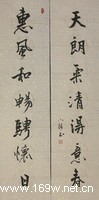 天朗氣清得意春
惠風和暢騁懷日
www.169w.net.cn